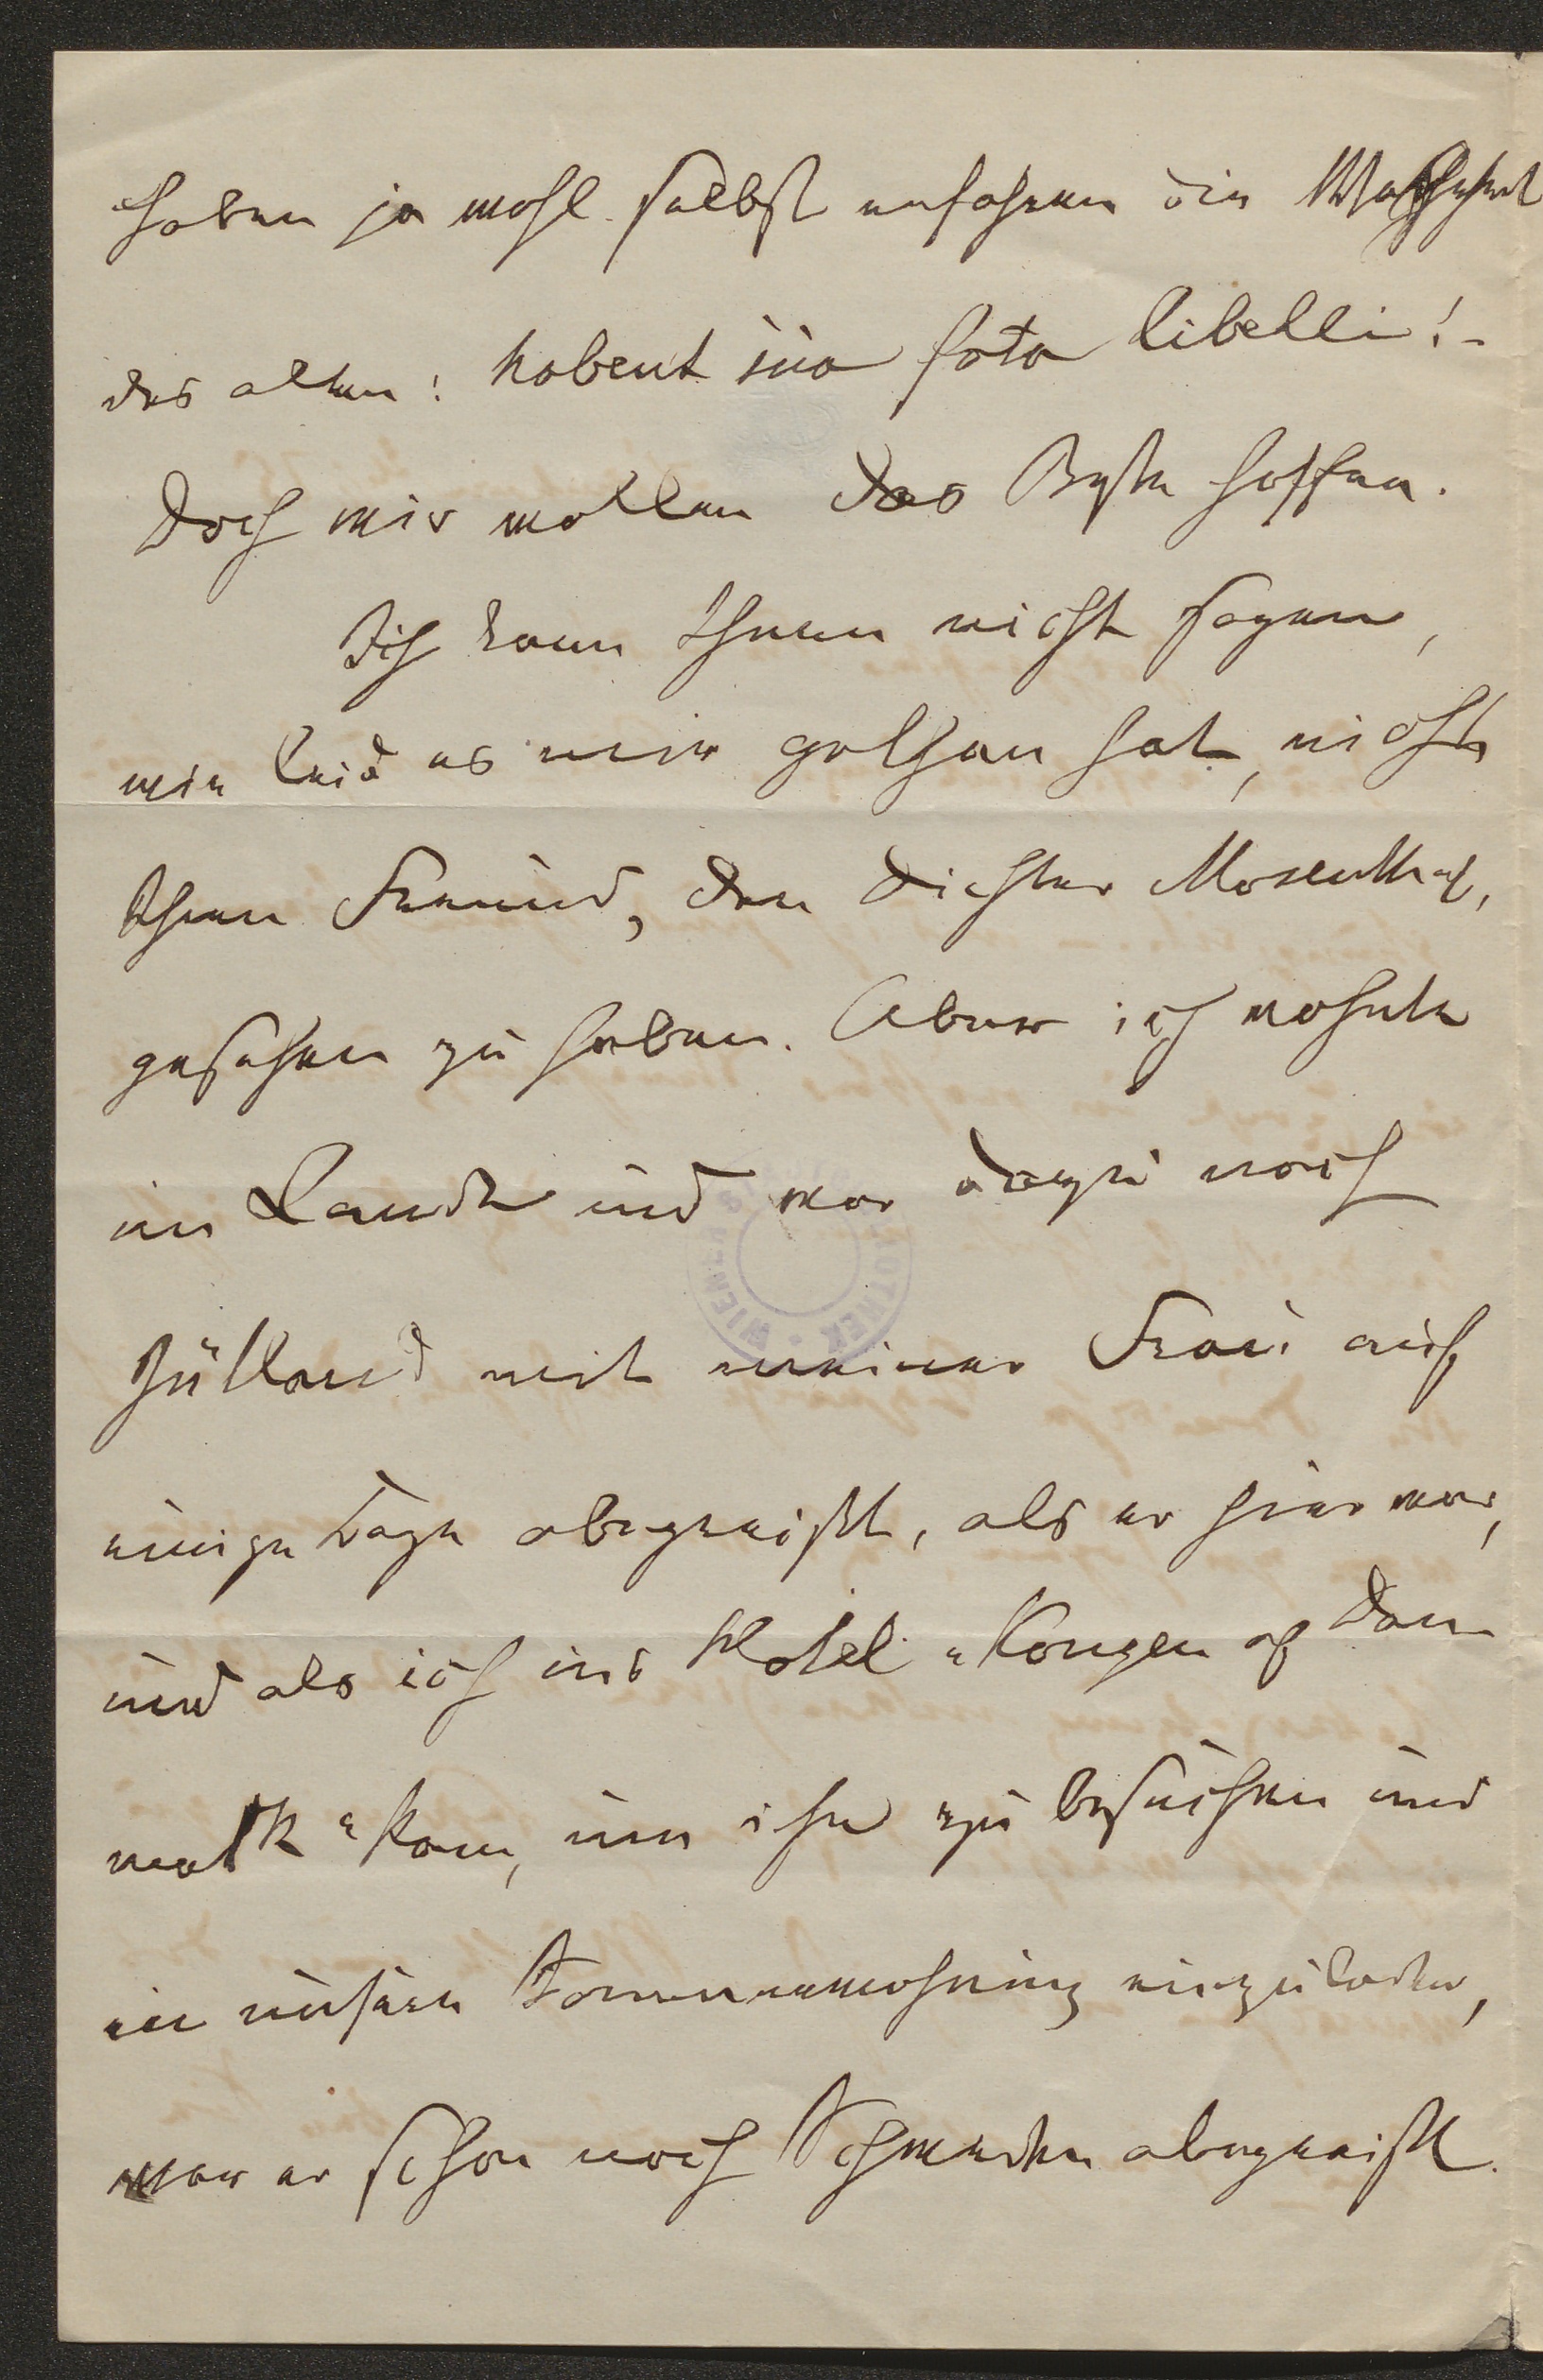 haben ja wohl selbst erfahren die Wahrheit
des alten: habent sua fata libelli! -
Doch wir wollen das Beste hoffen.
Ich kann Ihnen nicht sagen,
wie leid es mir gethan hat, nicht
Ihren Freund, den Dichter Mosenthal,
gesehen zu haben. Aber ich wohnte
im Lande und war dazu nach
Jütland mit meiner Frau auf
einige Tage abgereist, als er hier war,
und als ich ins Hotel "Kongen af Dan-
mark" kam, um ihn zu besuchen und
in unsere Sommerwohnung einzuladen,
war er schon nach Schweden abgereist.
WIENER BIBLIOTHEK